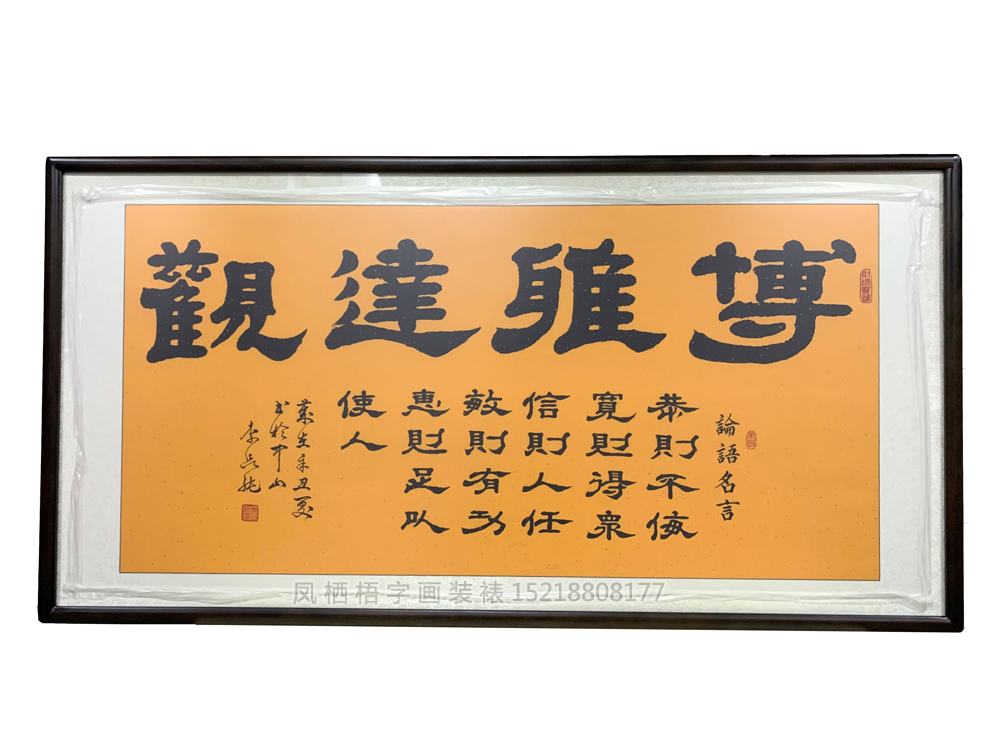 博雅達觀
論語名言
恭則不侮
寬則得衆
信則人任
敏則有功
惠則足以
使人
辛丑夏
書於中山
凤栖梧字画装裱 15218808177